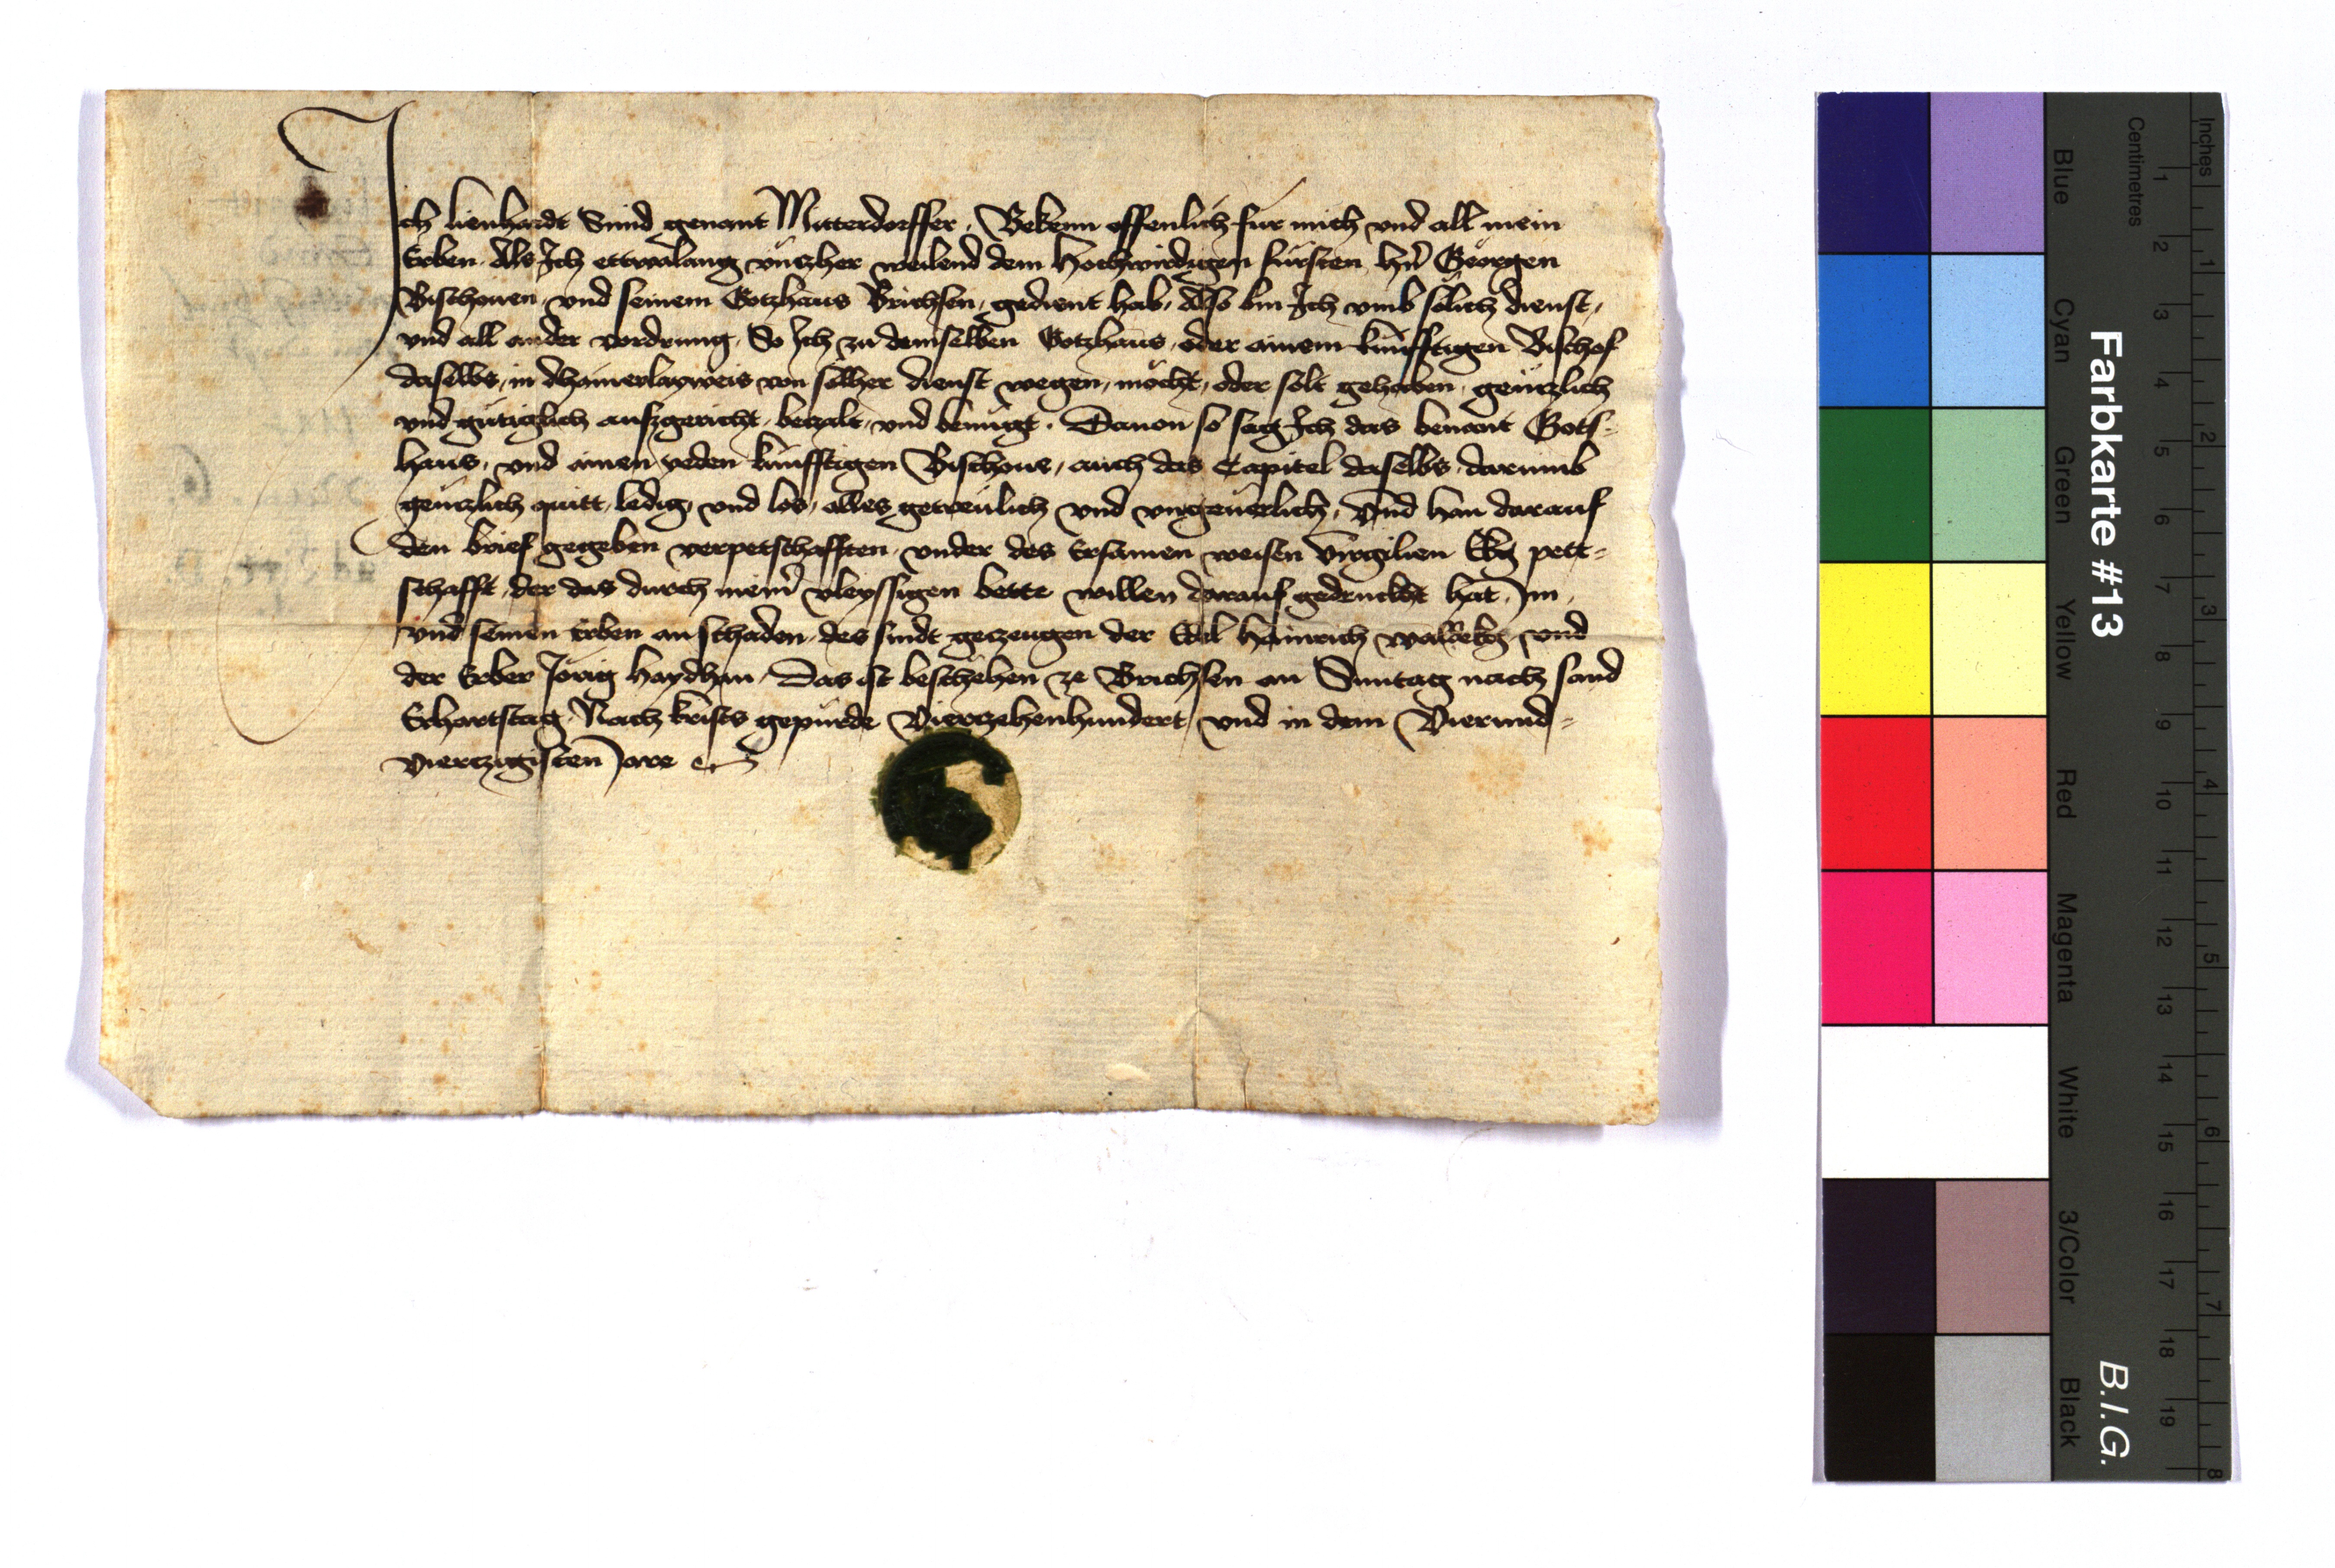 Ich lienhardt Smid genant Mitterdorffer, Bekenn offenlich fur mich und all mein
Erben, Als Ich ettwalang untzher weilend dem Hochwirdigen fursten hn Georgen
Bischouen, und seinem Gotzhaus Brichsen, gedient hab, Also bin Ich umb solich dienst,
und all ander vordrung, So Ich zu demselben Gotzhaus, oder ainem kunfftigen Bischof
daselbs, in dhainerlayweis von solher dienst wegen, möcht, oder solt gehaben, gentzlich
und gütiglich auszgericht, betzalt, und benügt. Dauon so sag Ich das benant Gots-
haus, und ainen yeden kunfftigen Bischoue, auch das Capitel daselbs, darumb
gentzlich quitt, ledig, und los, alles getreulich und ungeuerlich, Und han darauf
den brief gegeben verpetschafften, under des Ersamen weisen Virgilien pett-
schafft, der das durch meinr vleyssigen bette willen darauf gedruckht hat, Im,
und seinen Erben an schaden, des sindt getzeugen der Edel Hainrich und
der Erber Jörig haydhan, Das ist beschehen ze Brichsen an Suntag nach sand
Erhartstag, Nach krists gepurde Viertzehenhundert, und in dem Vierund-
viertzigisten Jare
Farbkarte #13
B.I.G.
Blue Cyan Green Yellow Red Magenta White 3/Color Black
Centimetres 1 2 3 4 5 6 7 8 9 10 11 12 13 14 15 16 17 18 19
Inches 1 2 3 4 5 6 7 8